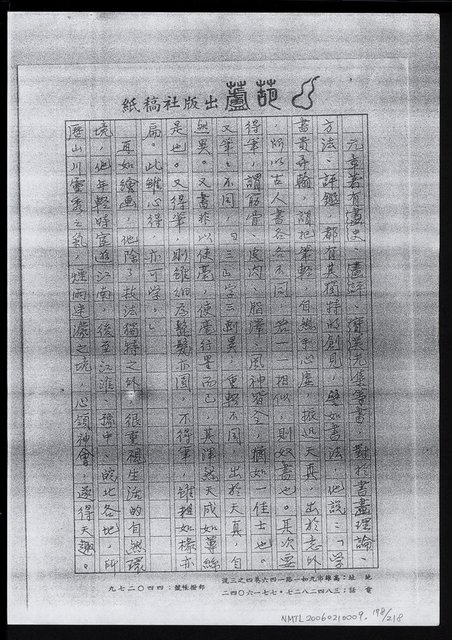 葫蘆出版社稿紙
元章著有畫史、畫評、寶晉光集等書，對於書畫理論、
方法、評鑑，都有其獨特的創見，譬如書法，他說：「學
書貴弄翰，謂把筆輕，自然手心虛，振迅天真，出於意外
，所以古人書各各不同，若一一相似，則奴書也。其次要
得筆，謂筋骨、皮肉、脂澤、風神皆全，猶如一佳士也。
又筆筆不同，『三』字三畫異，重輕不同，出於天真，自
然異。又書非以使毫，使毫行墨而已，其渾然天成如蓴絲
是也。又得筆，則雖細為髭髮亦圓，不得筆，雖粗如椽亦
扁。此雖心得，亦可學。」
再如繪畫，他除了技法獨特之外，很重視生活的自然環
境，他年輕時宦遊江南，後至江淮、豫中、皖北各地，所
歷山川靈秀之氣，煙雨迷濛之境，心領神會，遂得天趣。
地址：高雄市九如一路一四六巷四之三號
電話：三八四二八二七・七七一六〇四二
郵撥帳號：四四〇二七九
NMTL20060210009. 198/218